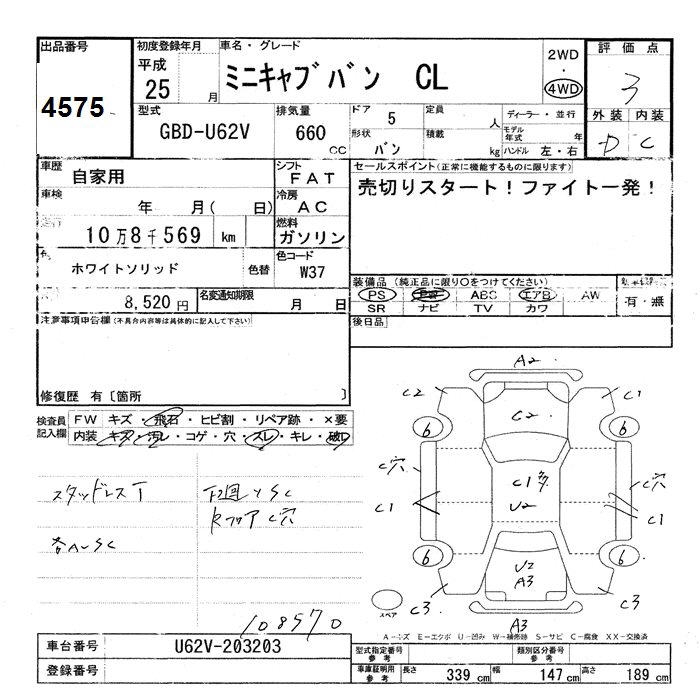 出品番号
4575
初度登録年月
平成
25 月
車名・グレード
ミニキャブバン CL
2WD
・
4WD
評価点
3
外装 内装
D C
型式
GBD-U62V
排気量
660 CC
ドア 5
形状 バン
定員 人
積載 kg
ディーラー・並行
モデル年式 年
ハンドル 左・右
車歴
自家用
シフト
FAT
車検
年 月( 日)
冷房
AC
走行
10万8千569 km
燃料
ガソリン
ホワイトソリッド 色替
色コード
W37
8,520円
名変通知期限
月 日
セールスポイント(正常に機能するものに限ります)
売切りスタート!ファイト一発!
装備品(純正品に限り○をつけてください)
PS ABS エアB AW
SR ナビ TV カワ
有・無
後日品
注意事項申告欄(不具合内容等は具体的に記入して下さい)
修復歴 有〔箇所 〕
検査員記入欄
FW キズ・飛石・ヒビ割・リペア跡・×要
内装 キズ・汚レ・コゲ・穴・スレ・キレ・破レ
スタッドレスT
下回りSC
RフロアC穴
各AuSC
108570
A2
C2 C1
C2
6 6
C穴 C穴
C1多
U2
C1 C1
6 6
U2
A3
C3 C3
A3
スペア
A―キズ E―エクボ U―凹み W―補修跡 S―サビ C―腐食 XX―交換済
車台番号 U62V-203203
登録番号
型式指定番号参考
類別区分番号参考
車庫証明用参考
長さ 339 cm 幅 147 cm 高さ 189 cm